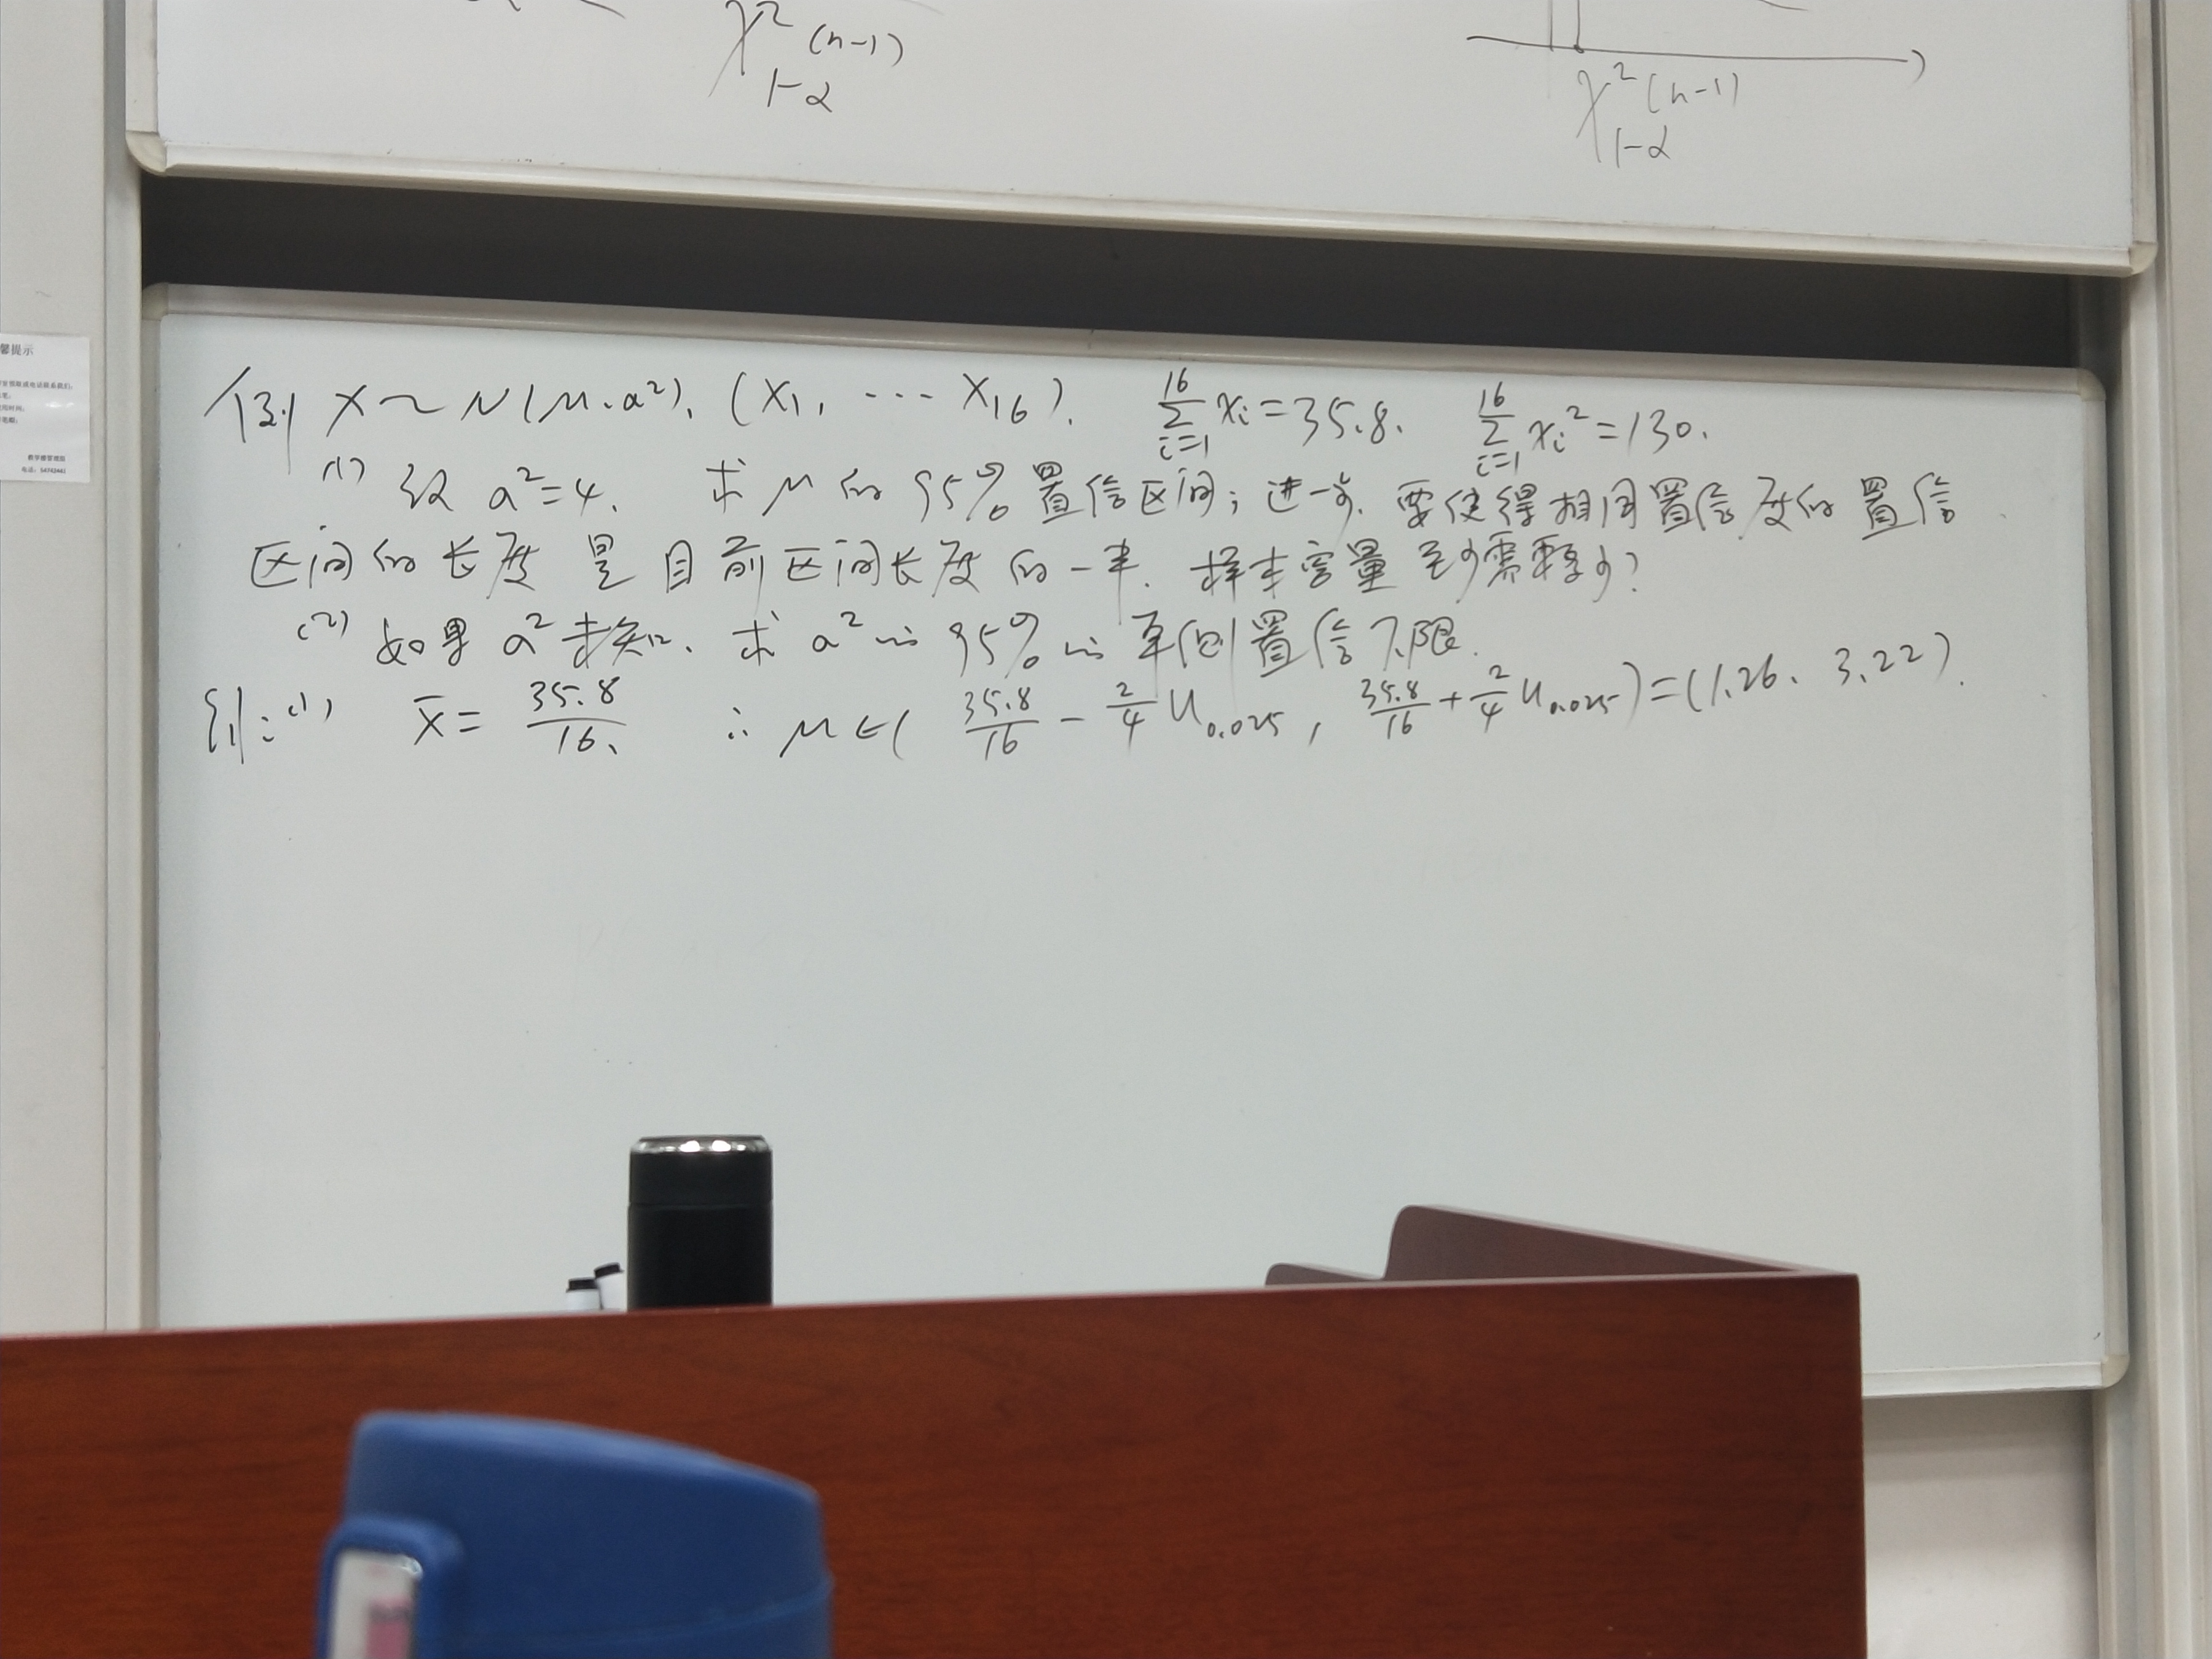 χ²(n-1)
1-α
χ²(n-1)
1-α
馨提示
电话: 54742442
例 X~N(μ.σ²), (X₁, ··· X₁₆). ∑_{i=1}^{16} xᵢ=35.8. ∑_{i=1}^{16} xᵢ²=130.
(1) 设 σ²=4. 求 μ 的 95% 置信区间; 进一步. 要使得相同置信度的置信
区间的长度 是 目前区间长度 的一半. 样本容量 至少需要多少?
(2) 如果 σ² 未知. 求 σ² 的 95% 的 单侧置信下限.
解:(1) x̄ = 35.8/16. ∴ μ∈( 35.8/16 - 2/4 U₀.₀₂₅, 35.8/16 + 2/4 U₀.₀₂₅)=(1.26. 3.22).